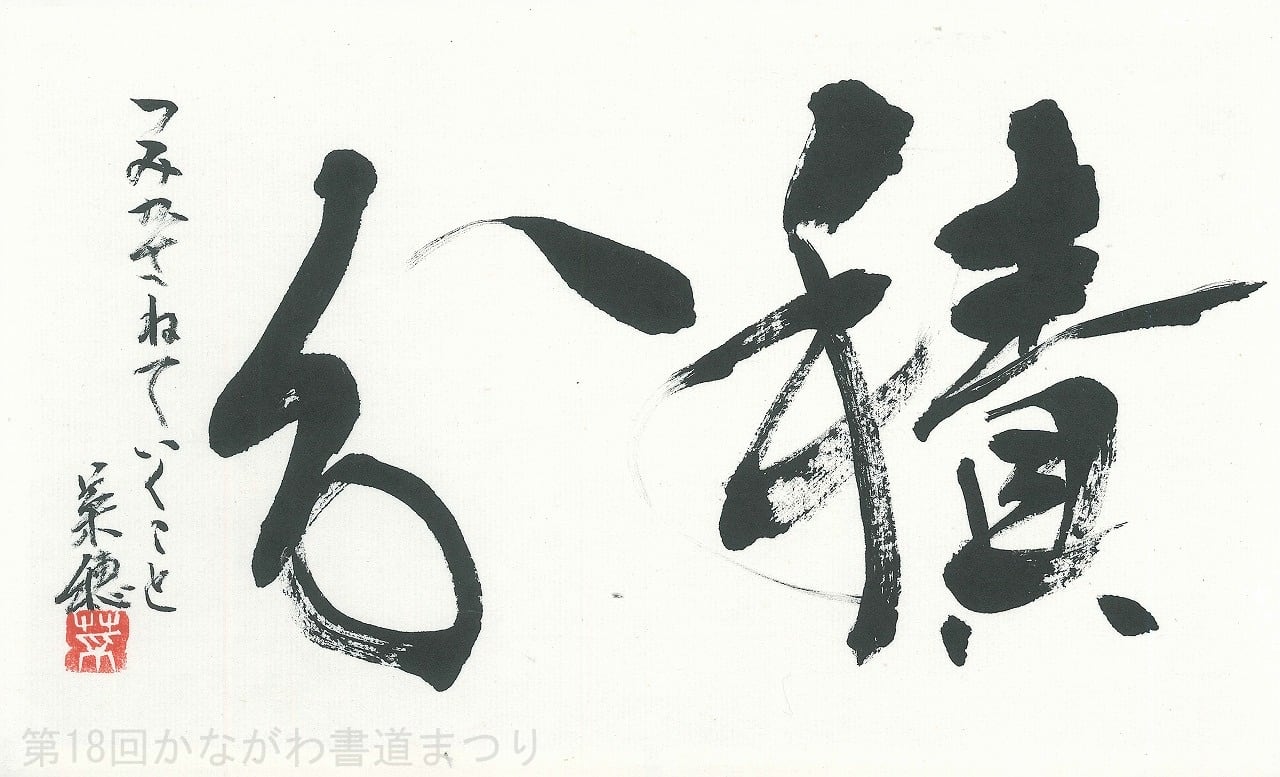 積分
つみかさねていくこと
菜穂
菜
第18回かながわ書道まつり